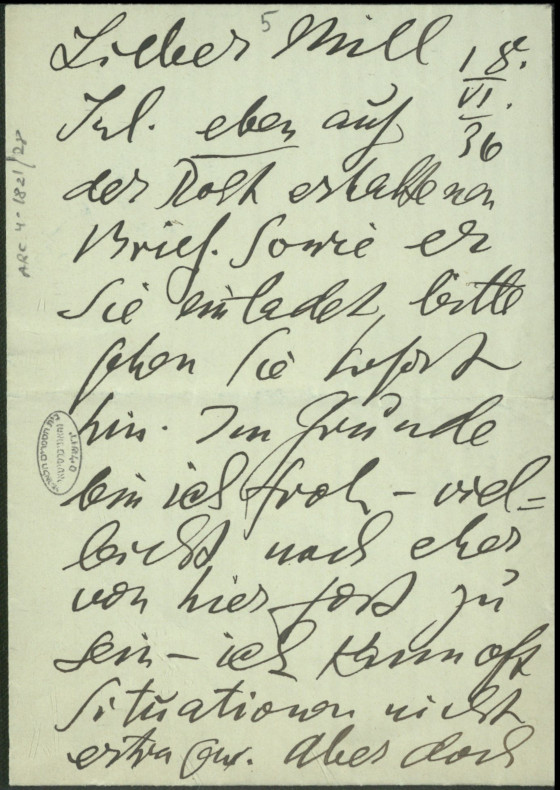 5
Lieber Mill 18.
VI.
36
Inl. eben auf
der Post erhaltenen
Brief. Sowie er
Sie einladet, bitte
gehen Sie sofort
hin. Im Grunde
bin ich froh – viel=
leicht noch eher
von hier fort zu
sein – ich kann oft
Situationen nicht
ertragen. Aber doch
ARC 4-1821/28